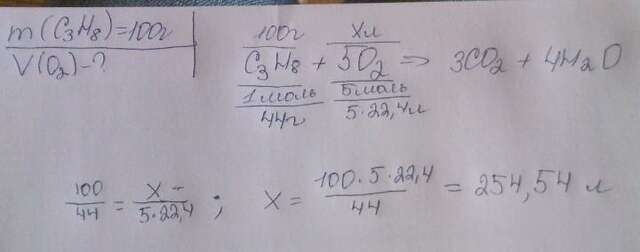 m(C₃H₈)=100г
V(O₂)-?
100г хл
C₃H₈ + 5O₂ ⇒ 3CO₂ + 4H₂O
1моль 5моль
44г 5·22,4л
100/44 = x/5·22,4 ; x = 100·5·22,4/44 = 254,54 л